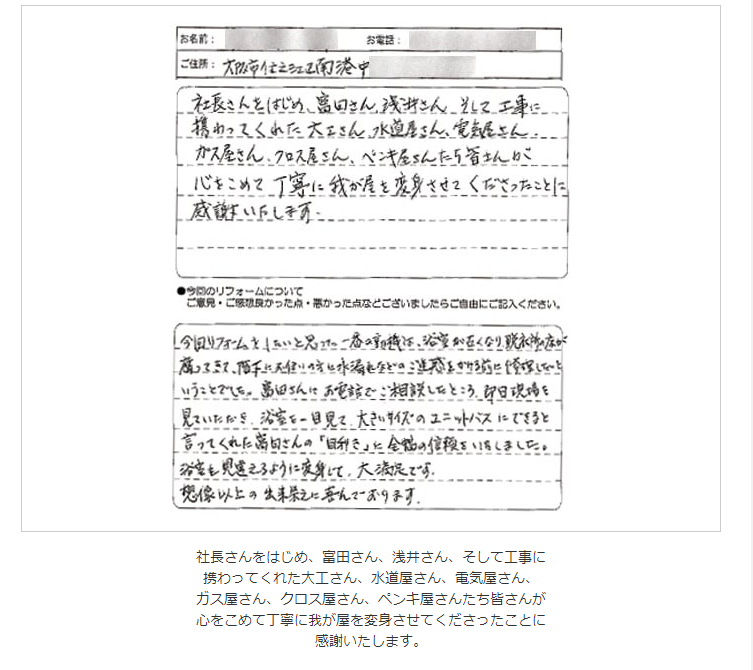 お名前：
お電話：
ご住所：大阪市住之江区南港中
社長さんをはじめ、富田さん、浅井さん、そして工事に
携わってくれた大工さん、水道屋さん、電気屋さん、
ガス屋さん、クロス屋さん、ペンキ屋さんたち皆さんが
心をこめて丁寧に我が屋を変身させてくださったことに
感謝いたします。
●今回のリフォームについて
ご意見・ご感想良かった点・悪かった点などございましたらご自由にご記入ください。
今回リフォームをしたいと思った一番の動機は、浴室が古くなり、脱衣場の床が
腐ってきて、階下にお住いの方に水漏れなどのご迷惑をかける前に修理したいと
いうことでした。富田さんにお電話でご相談したところ、即日現場を
見ていただき、浴室を一目見て、大きいサイズのユニットバスにできると
言ってくれた富田さんの「目利き」に全幅の信頼をいたしました。
浴室も見違えるように変身して、大満足です。
想像以上の出来栄えに喜んでおります。
社長さんをはじめ、富田さん、浅井さん、そして工事に
携わってくれた大工さん、水道屋さん、電気屋さん、
ガス屋さん、クロス屋さん、ペンキ屋さんたち皆さんが
心をこめて丁寧に我が屋を変身させてくださったことに
感謝いたします。